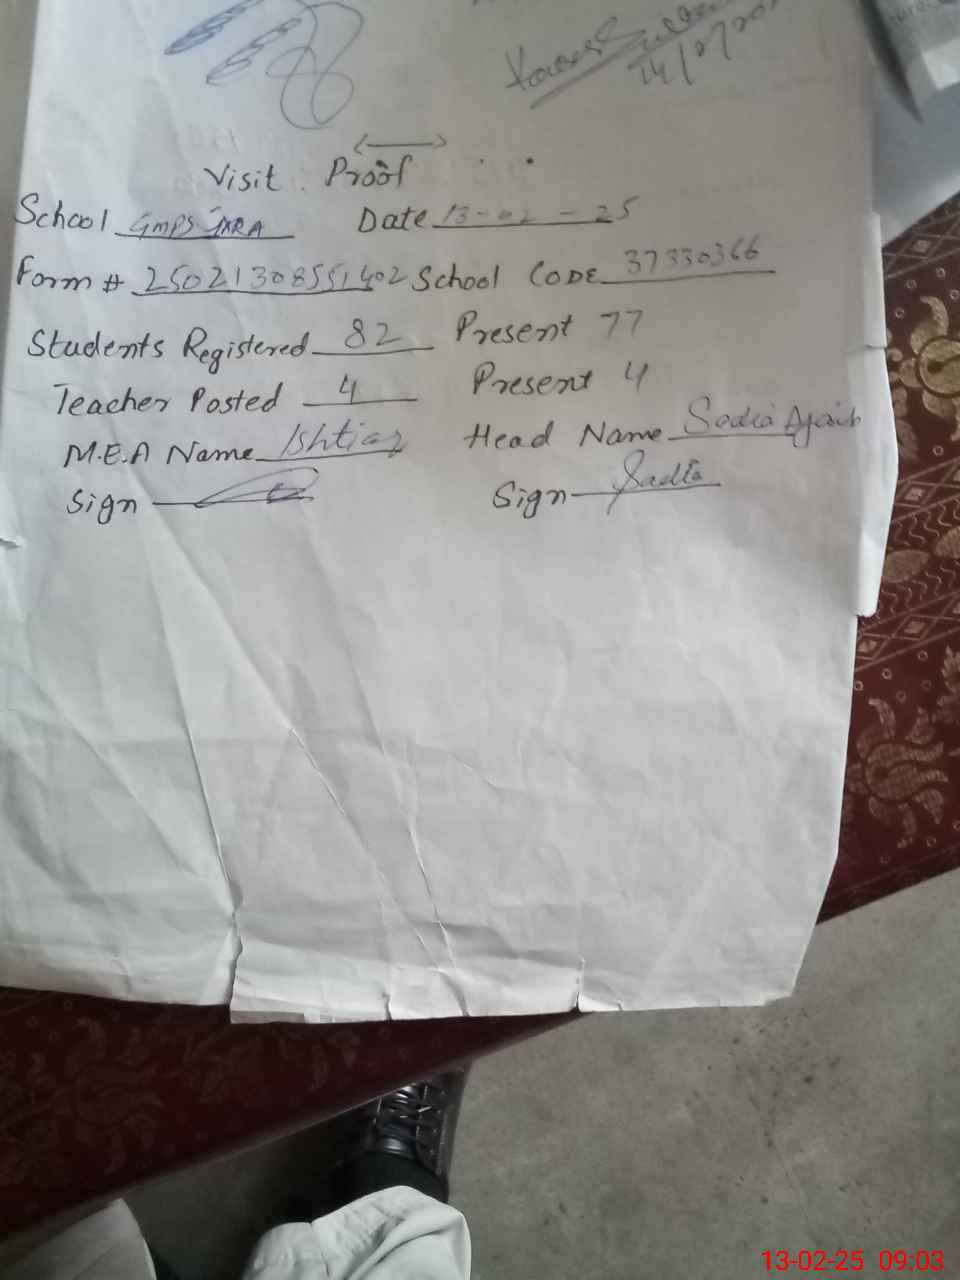 14/2/20
Visit Proof
School GMPS JXRA Date 13-02-25
Form # 25021308551402 School CODE 37330366
Students Registered 82 Present 77
Teacher Posted 4 Present 4
M.E.A Name Ishtiaq Head Name Sadia Ajaib
Sign Sign Sadia
13-02-25 09:03